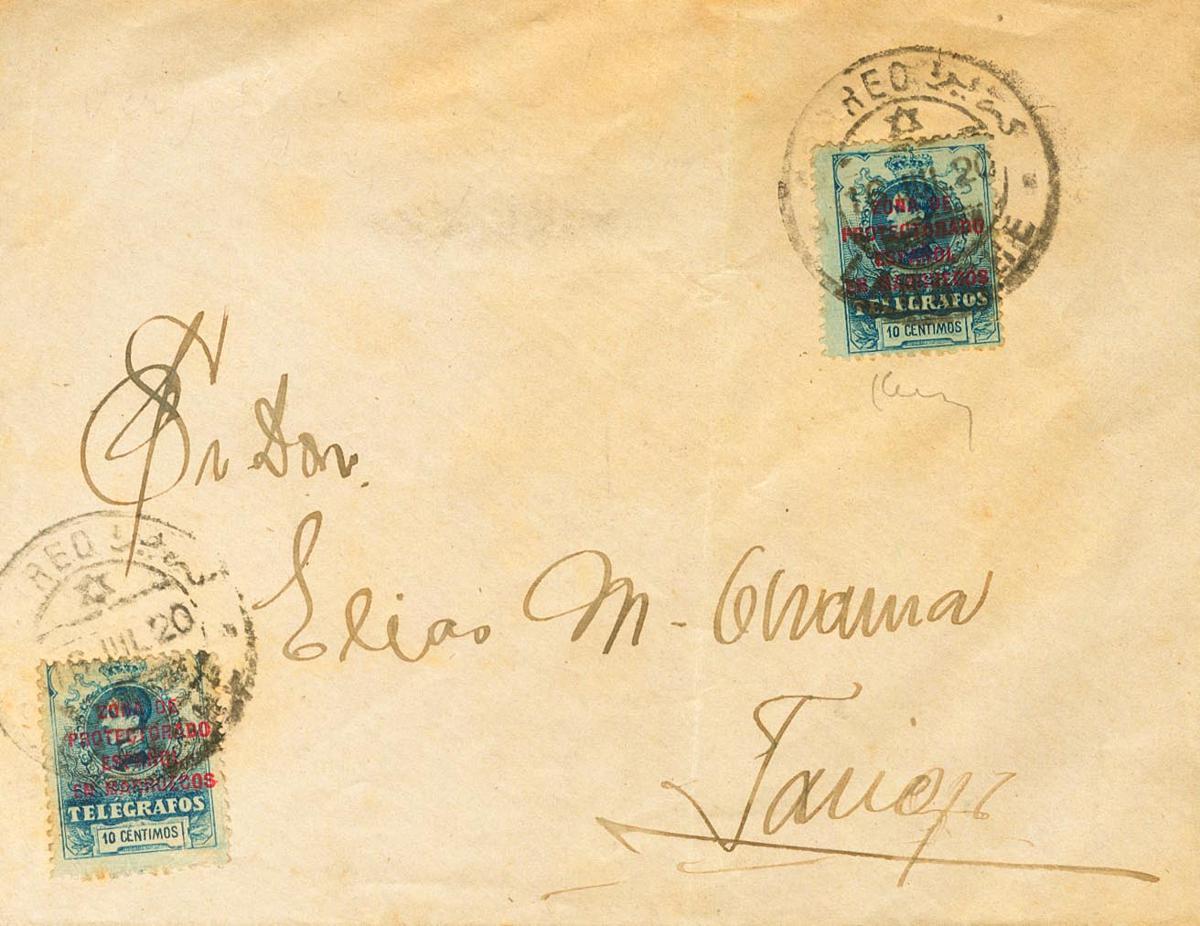 REO
JUL 20
ZONA DE
PROTECTORADO
ESPAÑOL
EN MARRUECOS
TELÉGRAFOS
10 CENTIMOS
Sr Don
Elias M.
REO
JUL 20
ZONA DE
PROTECTORADO
ESPAÑOL
EN MARRUECOS
TELÉGRAFOS
10 CENTIMOS